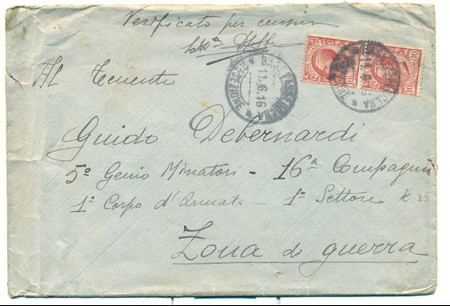 Verificato per censura
Al Tenente
Guido Debernardi
5° Genio Minatori - 16a Compagnia
1° Corpo d'Armata - 1° Settore
Zona di guerra
11.6.16